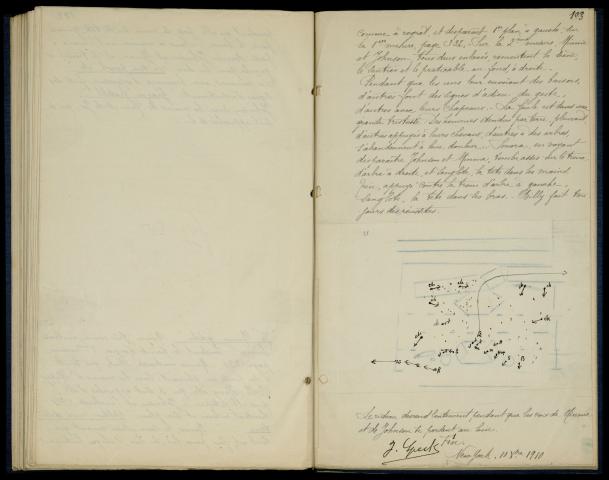 103
comme à regret, et disparaît 1er plan, à gauche, sur
la 1ère mesure, page 332. Sur la 2ème mesure, Minnie
et Johnson tous deux enlacés remontent la scène,
le sentier et le praticable, au fond, à droite.
Pendant que les uns leur envoient des baisers,
d'autres font des signes d'adieu du geste,
d'autres avec leurs chapeaux. La foule est dans une
grande tristesse. Des hommes étendus par terre, pleurent
d'autres appuyés à leurs chevaux, d'autres à des arbres,
s'abandonnent à leur douleur. Sonora, en voyant
disparaître Johnson et Minnie, tombe assis sur le tronc
d'arbre à droite et sanglote, la tête dans les mains.
appuyé contre le tronc d'arbre à gauche,
sanglote, la tête dans les bras. Billy fait
jours des réussites.
Le rideau descend lentement pendant que les voix de Minnie
et de Johnson se perdent au loin.
Fin.
New York, 10 Xbre 1910